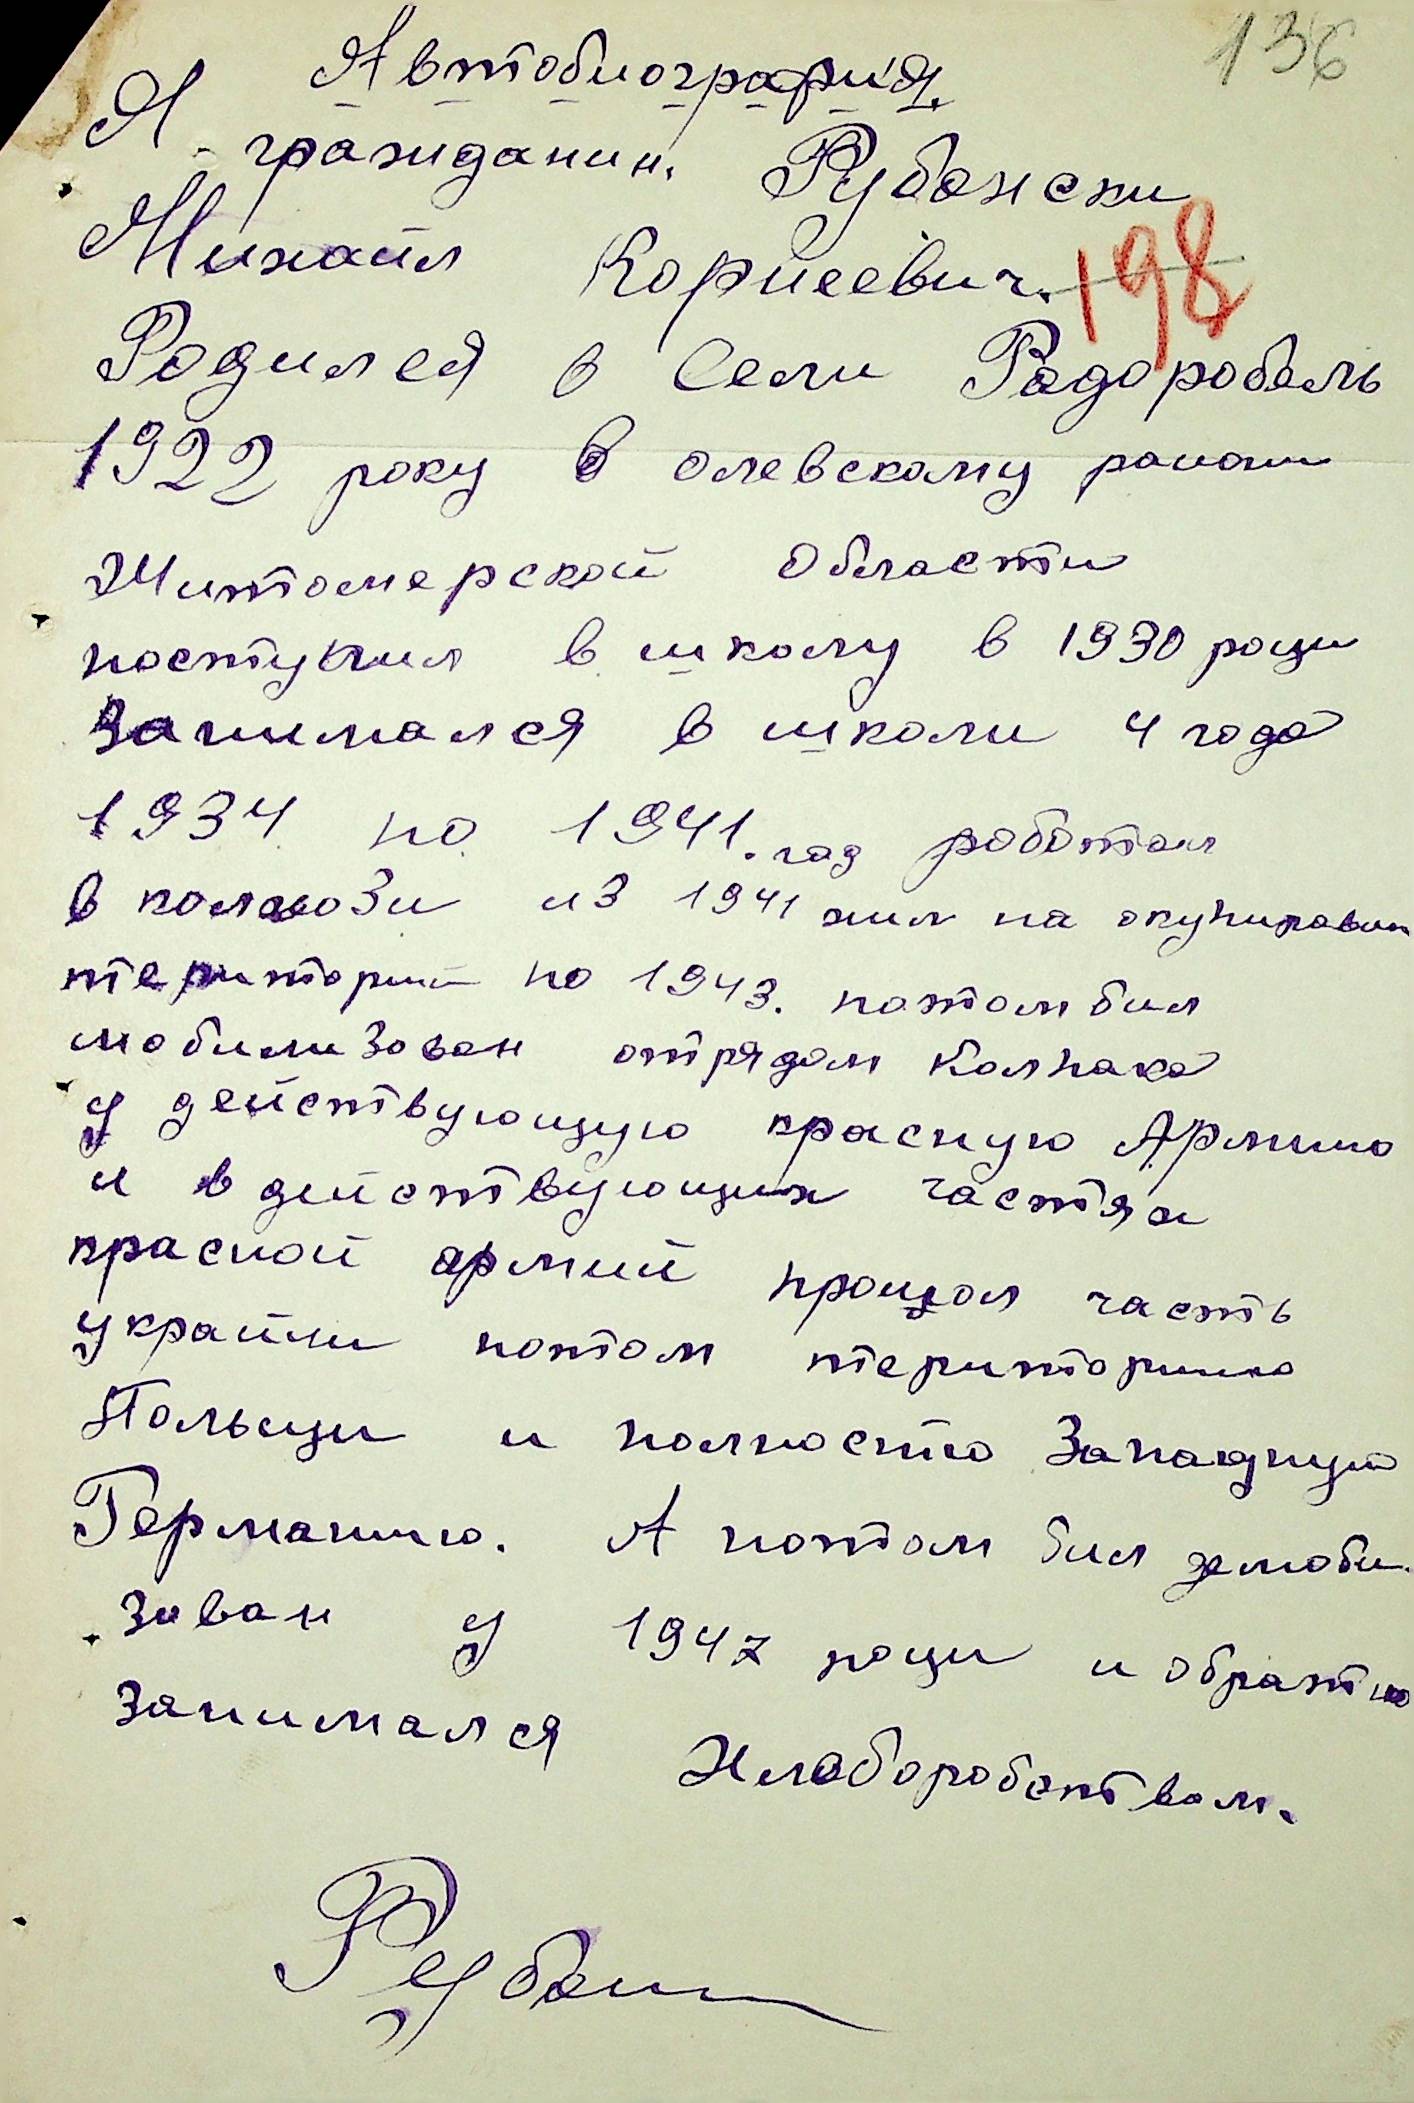 136
Автобиография.
Я гражданин. Рубански
Михаил Корнеевич.
198
Родился в Сели Радоробель
1922 року в олевскому раиони
Житомерской области
поступил в школу в 1930 роци
Занимался в школи 4 года
1934 по 1941. год роботал
в колхози из 1941 жил на окупирован
территорий по 1943. потом бил
мобилизован отрядом Колпака
у действующую красную Армию
и в действующих частях
красной армий прошол часть
украини потом територию
Польщи и полностю Западную
Германию. А потом бил демоби
зован у 1947 роци и обратно
занимался Хлеборобством.
Рубан